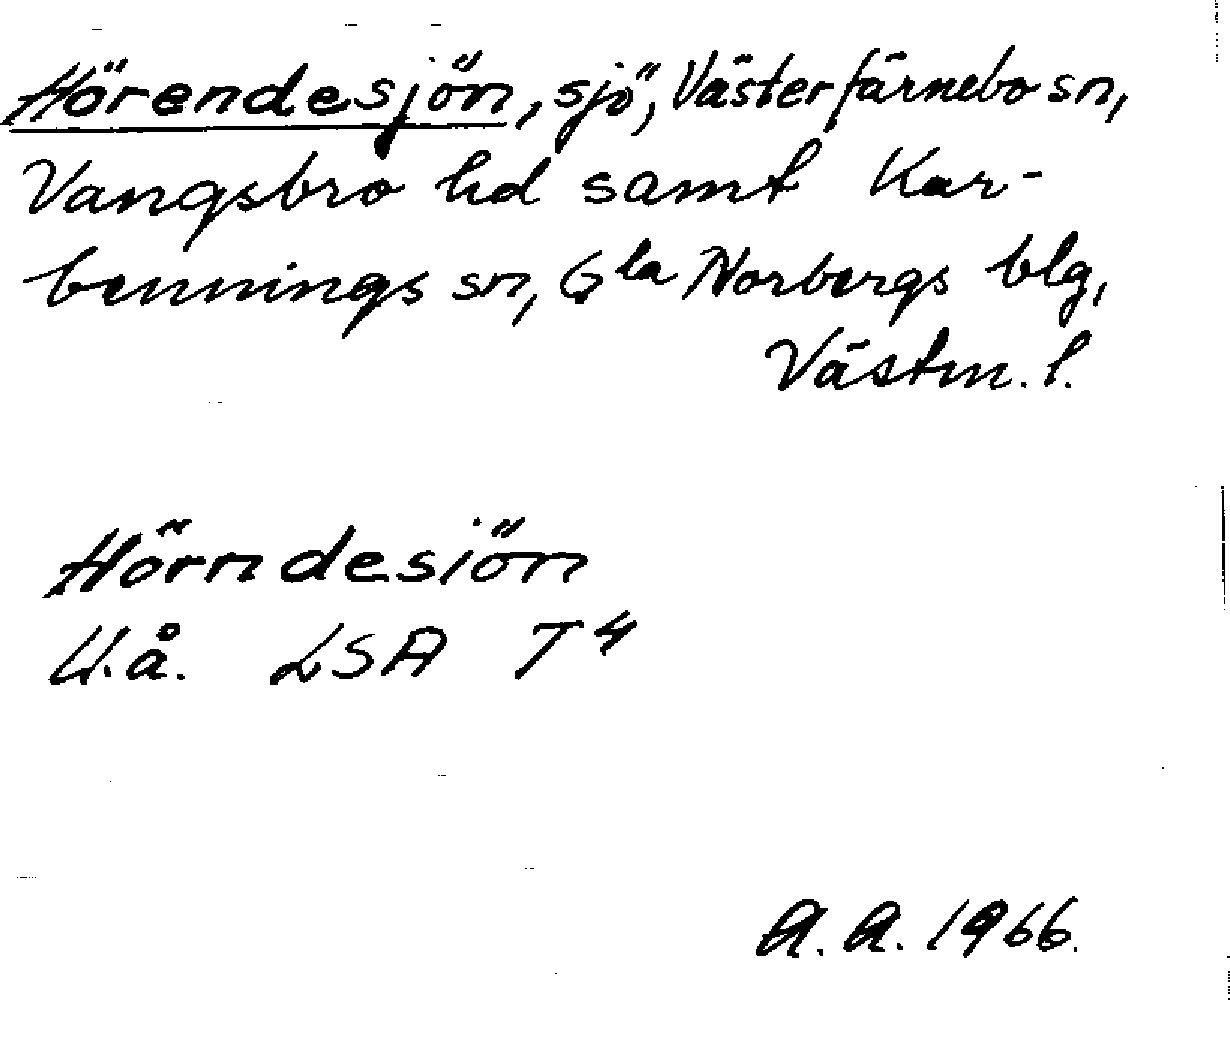 Hörendesjön, sjö, Västerfärnebo sn,
Vangsbro hd samt Kar-
bennings sn, Gla Norbergs blg,
Västm. l.
Hörndesiön
U.å. LSA T4
A.A. 1966.